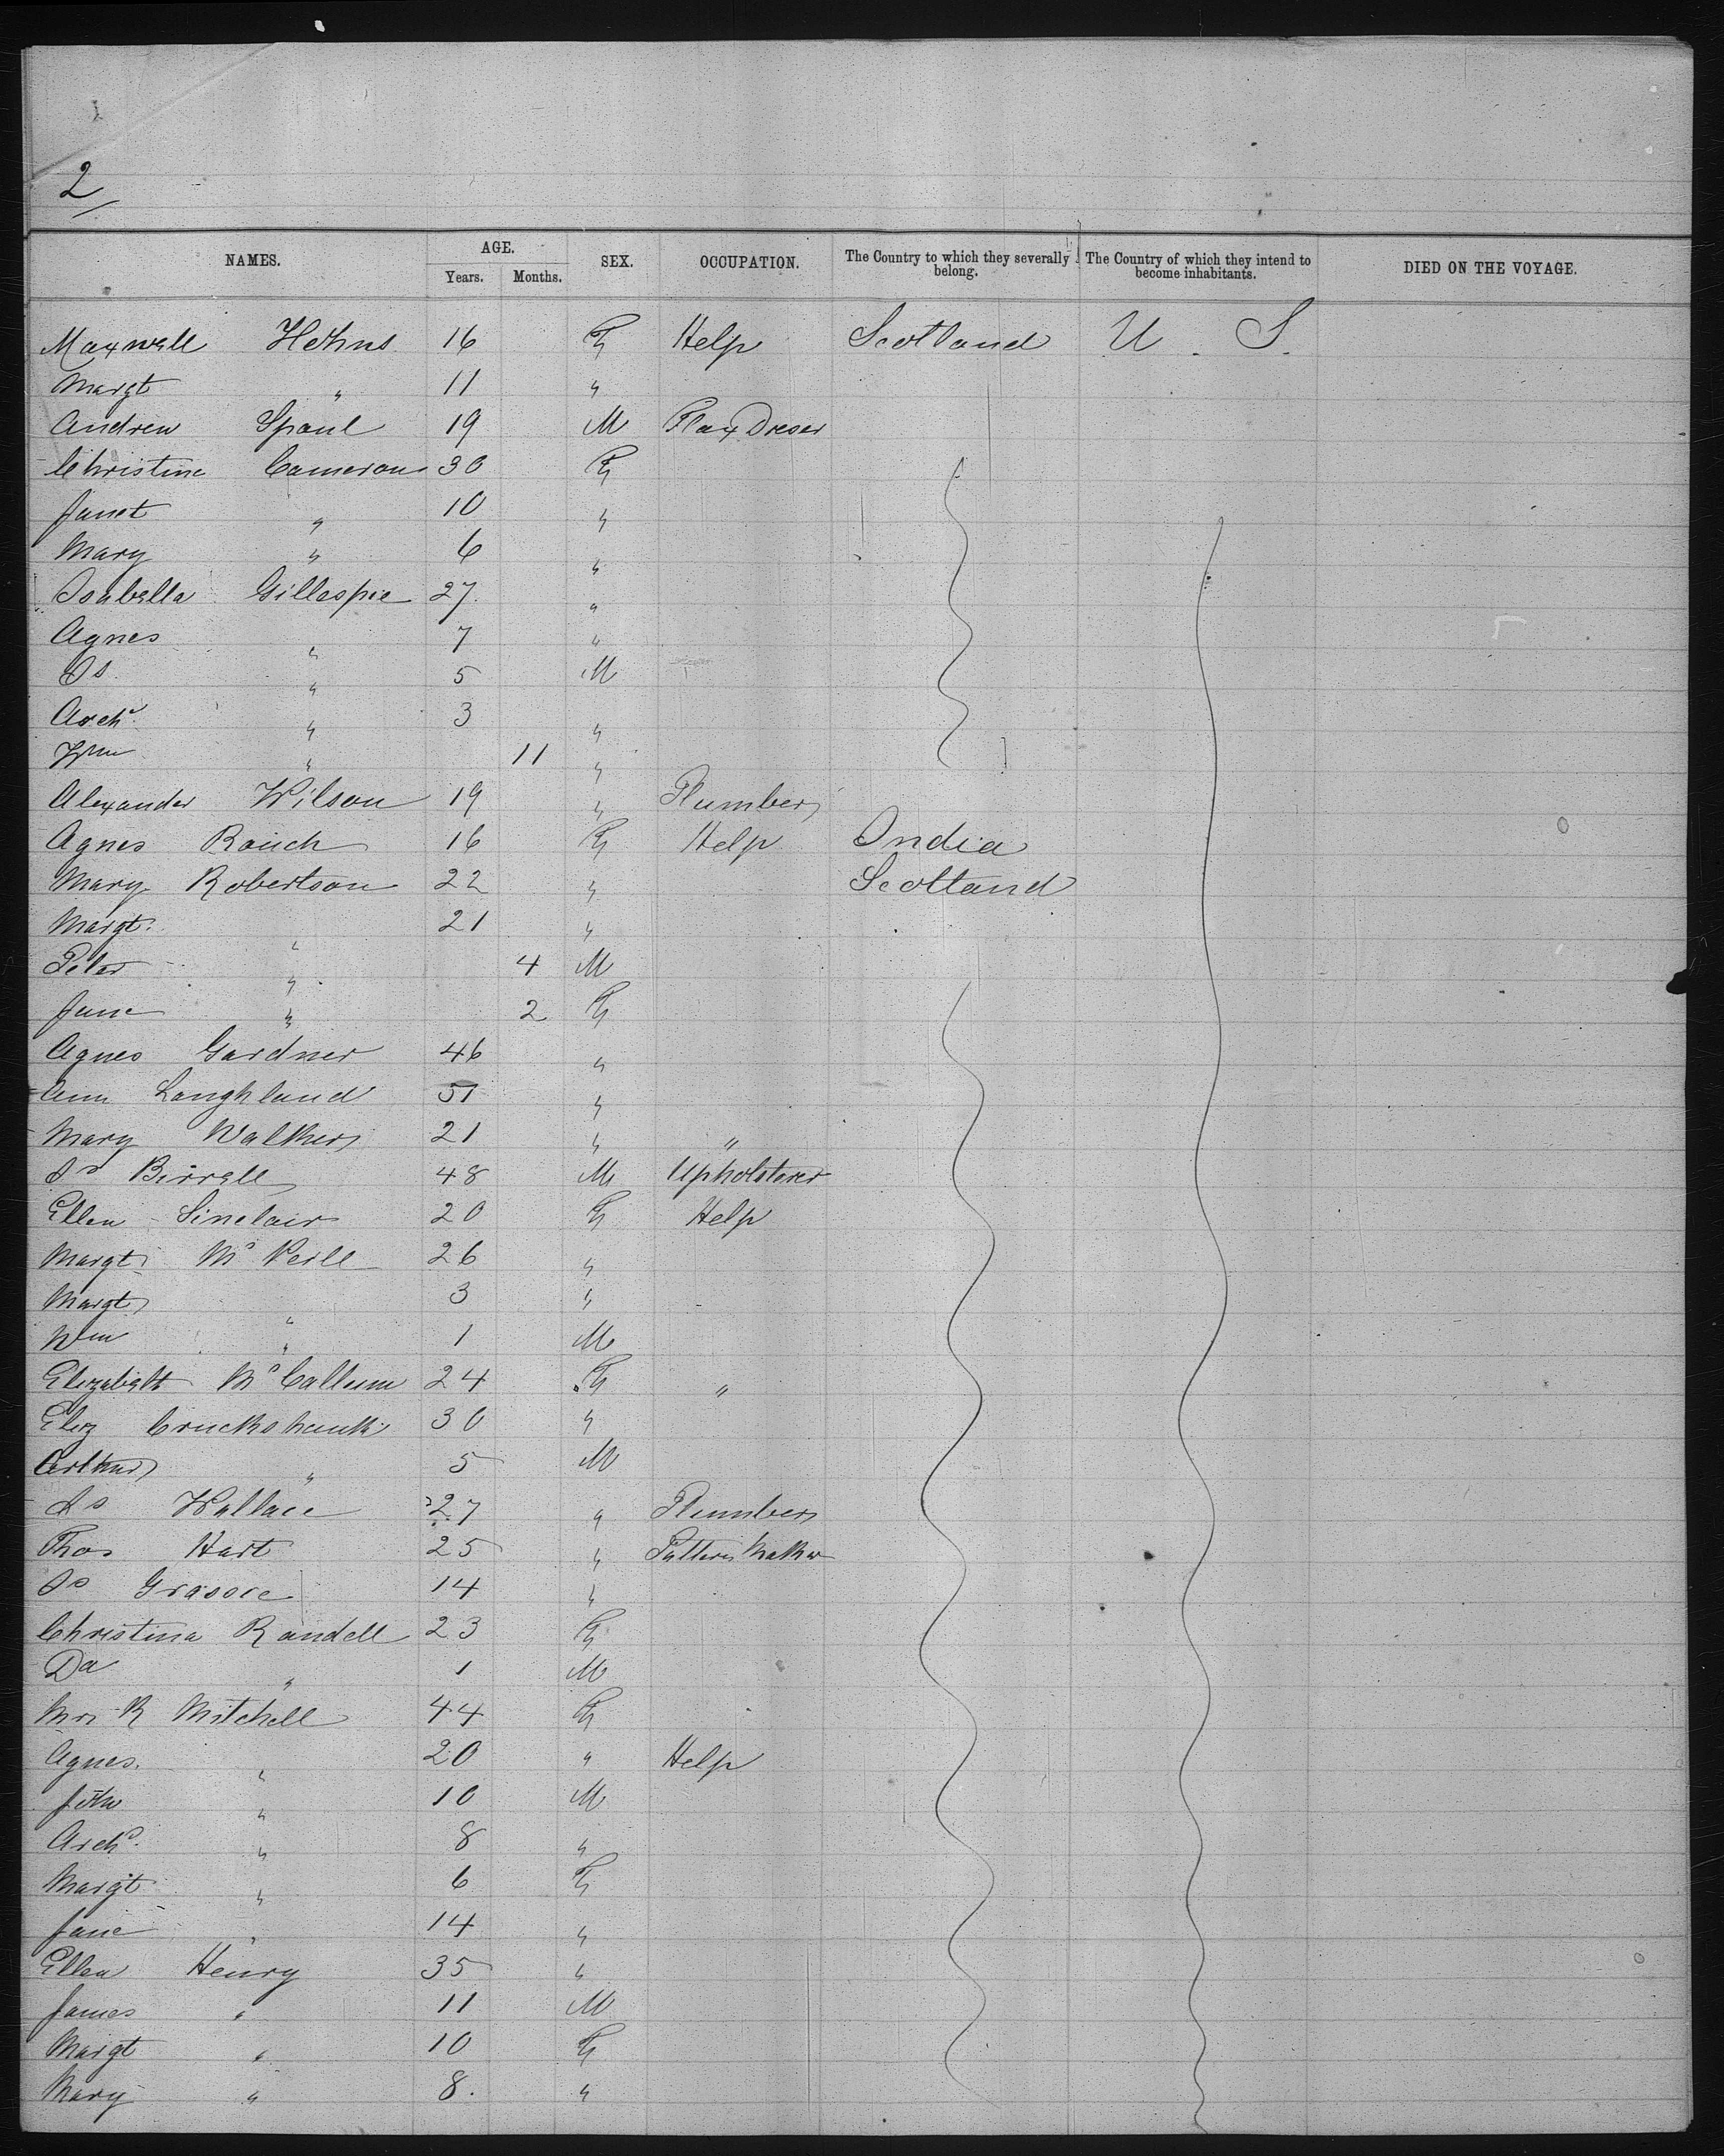 2
NAMES. AGE. SEX. OCCUPATION. The Country to which they severally belong. The Country of which they intend to become inhabitants. DIED ON THE VOYAGE.
Years. Months.
Maxwell 16 F Help Scotland U. S.
Margt " 11 "
Andrew Spaul 19 M Flax Dreser
Christina Cameron 30 F
Janet " 10 "
Mary " 6 "
Isabella Gillespie 27 "
Agnes " 7 "
Js " 5 M
Archd " 3 "
Wm " 11 "
Alexander Wilson 19 " Plumber
Agnes 16 F Help India
Mary Robertson 22 " Scotland
Margt. " 21 "
Peter " 4 M
Jane " 2 F
Agnes Gardner 46 "
Ann Langhland 51 "
Mary Walker 21 " "
Js Birrell 48 M Upholsterer
Ellen Sinclair 20 F Help
Margt McNeill 26 "
Margt " 3 "
Wm " 1 M
Elizabeth McCallum 24 F "
Eliz Cruckshank 30 "
Arthur " 5 M
Js Wallace 27 " Plumber
Thos Hart 25 " Pattern Maker
Js 14 "
Christina Randell 23 F
Da " 1 M
Mrs R Mitchell 44 F
Agnes " 20 " Help
John " 10 M
Archd. " 8 "
Margt " 6 F
Jane " 14 "
Ellen Henry 35 "
James " 11 M
Margt " 10 F
Mary " 8. "